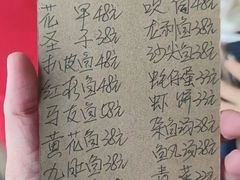 花甲48元
圣子38元
扒皮鱼48元
红杉鱼48元
马友鱼58元
黄花鱼38元
九肚鱼38元
龙利鱼38元
沙尖鱼38元
蚝仔蛋33元
虾 饼33元
杂鱼汤38元
鱼丸汤38元
青菜